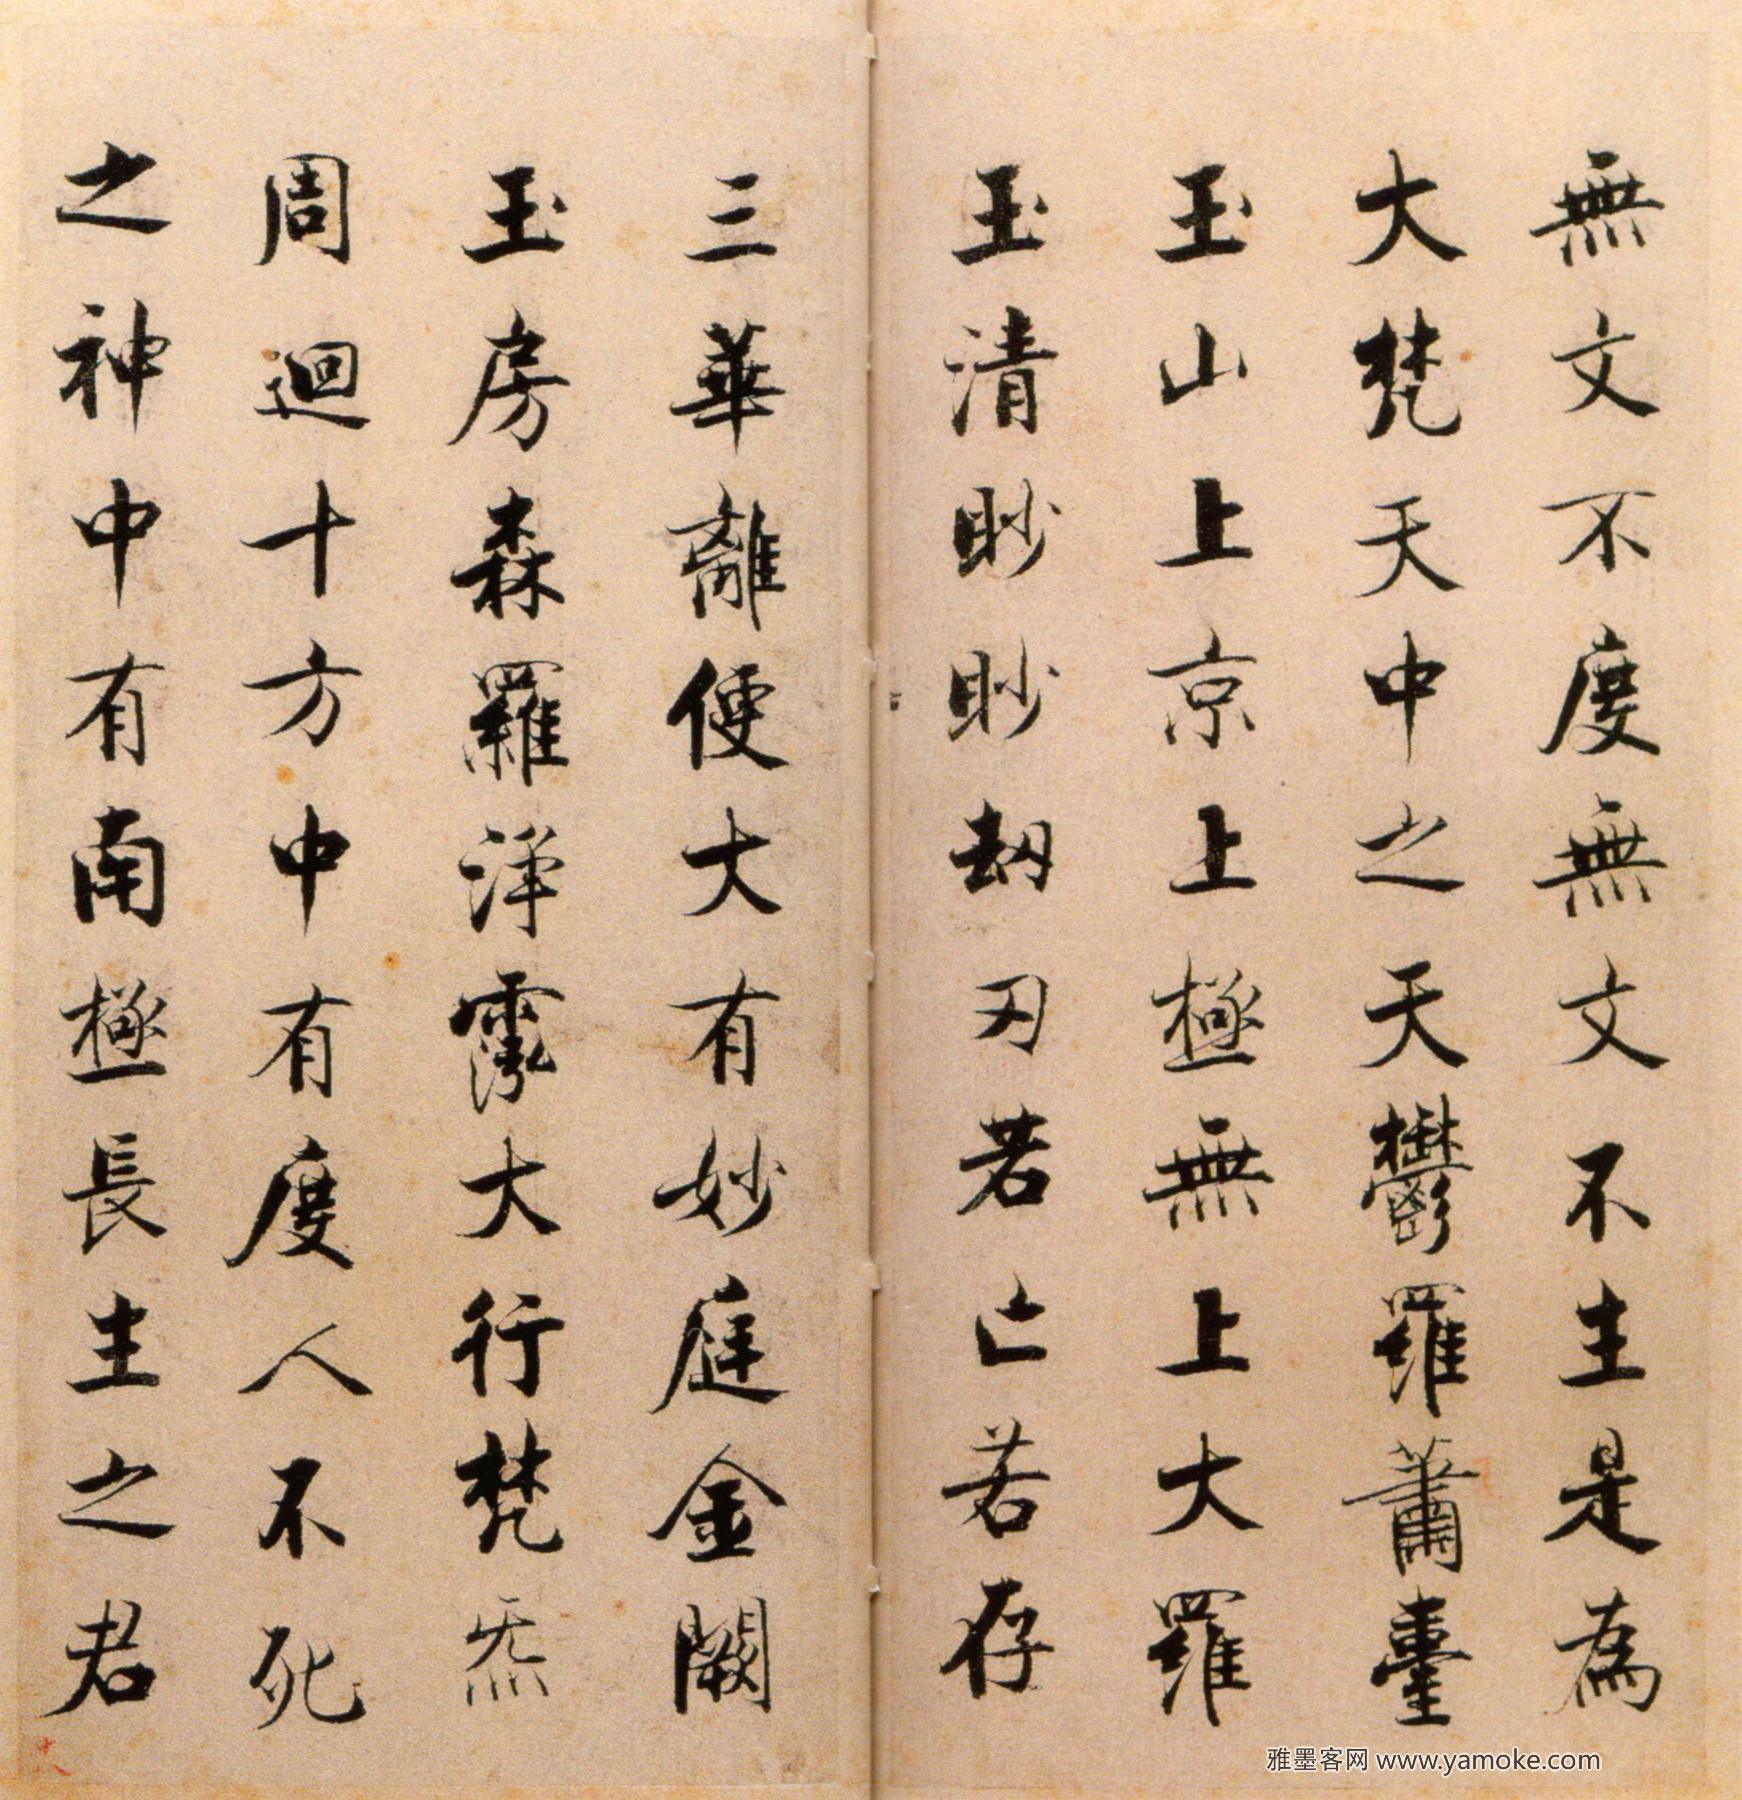 無文不度無文不主是為
大梵天中之天鬱羅蕭臺
玉山上京上極無上大羅
玉清眇眇劫刃若亡若存
三華離便大有妙庭金闕
玉房森羅淨霐大行梵炁
周迴十方中有度人不死
之神中有南極長主之君
十八
雅墨客网 www.yamoke.com